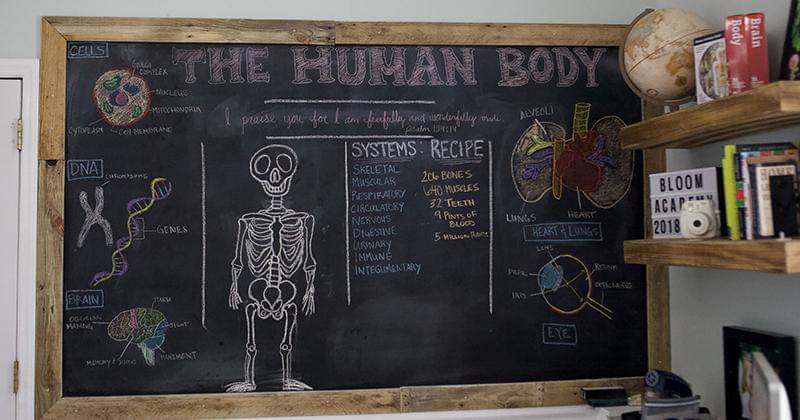 THE HUMAN BODY
I praise you for I am fearfully and wonderfully made
Psalm 139:14
CELLS
GOLGI
COMPLEX
NUCLEUS
MITOCHONDRIA
CYTOPLASM
CELL MEMBRANE
DNA
GENES
BRAIN
DECISION
MAKING
MEMORY &
MOVEMENT
SYSTEMS: RECIPE
SKELETAL
MUSCULAR
RESPIRATORY
CIRCULATORY
NERVOUS
DIGESTIVE
URINARY
IMMUNE
INTEGUMENTARY
206 BONES
640 MUSCLES
32 TEETH
9 PINTS OF
BLOOD
5 MILLION HAIRS
ALVEOLI
LUNGS
HEART
HEART & LUNGS
LENS
PUPIL
IRIS
RETINA
OPTIC NERVE
EYE
Body
Brain
BLOOM
ACADEMY
2018
HOME